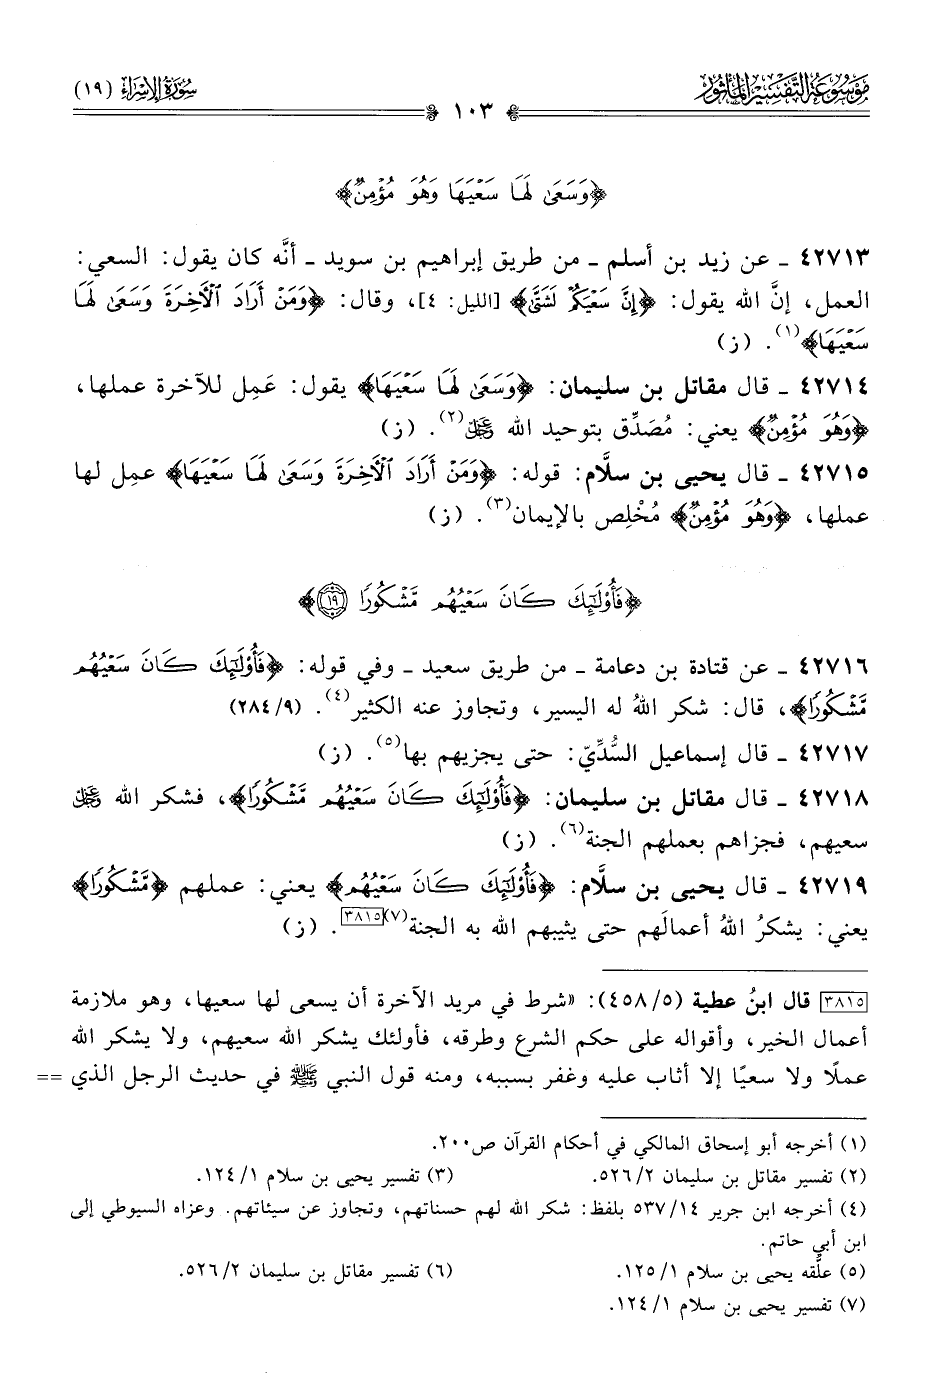 موسوعة التفسير المأثور
١٠٣
سورة الإسراء (١٩)
﴿وَسَعَىٰ لَهَا سَعْيَهَا وَهُوَ مُؤْمِنٌ﴾
٤٢٧١٣ ـ عن زيد بن أسلم ـ من طريق إبراهيم بن سويد ـ أنَّه كان يقول: السعي:
العمل، إنَّ الله يقول: ﴿إِنَّ سَعْيَكُمْ لَشَتَّىٰ﴾ [الليل: ٤]، وقال: ﴿وَمَنْ أَرَادَ ٱلْآخِرَةَ وَسَعَىٰ لَهَا
سَعْيَهَا﴾(١). (ز)
٤٢٧١٤ ـ قال مقاتل بن سليمان: ﴿وَسَعَىٰ لَهَا سَعْيَهَا﴾ يقول: عَمِل للآخرة عملها،
﴿وَهُوَ مُؤْمِنٌ﴾ يعني: مُصَدِّق بتوحيد الله ﷿(٢). (ز)
٤٢٧١٥ ـ قال يحيى بن سلَّام: قوله: ﴿وَمَنْ أَرَادَ ٱلْآخِرَةَ وَسَعَىٰ لَهَا سَعْيَهَا﴾ عمِل لها
عملها، ﴿وَهُوَ مُؤْمِنٌ﴾ مُخْلِص بالإيمان(٣). (ز)
﴿فَأُوْلَٰٓئِكَ كَانَ سَعْيُهُم مَّشْكُورًا ١٩﴾
٤٢٧١٦ ـ عن قتادة بن دعامة ـ من طريق سعيد ـ وفي قوله: ﴿فَأُوْلَٰٓئِكَ كَانَ سَعْيُهُم
مَّشْكُورًا﴾، قال: شكر اللهُ له اليسير، وتجاوز عنه الكثير(٤). (٢٨٤/٩)
٤٢٧١٧ ـ قال إسماعيل السُّدِّيّ: حتى يجزيهم بها(٥). (ز)
٤٢٧١٨ ـ قال مقاتل بن سليمان: ﴿فَأُوْلَٰٓئِكَ كَانَ سَعْيُهُم مَّشْكُورًا﴾، فشكر الله ﷿
سعيهم، فجزاهم بعملهم الجنة(٦). (ز)
٤٢٧١٩ ـ قال يحيى بن سلَّام: ﴿فَأُوْلَٰٓئِكَ كَانَ سَعْيُهُم﴾ يعني: عملهم ﴿مَّشْكُورًا﴾
يعني: يشكرُ اللهُ أعمالَهم حتى يثيبهم الله به الجنة(٧)[٣٨١٥]. (ز)
[٣٨١٥] قال ابنُ عطية (٤٥٨/٥): «شرط في مريد الآخرة أن يسعى لها سعيها، وهو ملازمة
أعمال الخير، وأقواله على حكم الشرع وطرقه، فأولئك يشكر الله سعيهم، ولا يشكر الله
عملًا ولا سعيًا إلا أثاب عليه وغفر بسببه، ومنه قول النبي ﷺ في حديث الرجل الذي ==
(١) أخرجه أبو إسحاق المالكي في أحكام القرآن ص٢٠٠.
(٢) تفسير مقاتل بن سليمان ٥٢٦/٢.
(٣) تفسير يحيى بن سلام ١٢٤/١.
(٤) أخرجه ابن جرير ٥٣٧/١٤ بلفظ: شكر الله لهم حسناتهم، وتجاوز عن سيئاتهم. وعزاه السيوطي إلى
ابن أبي حاتم.
(٥) علَّقه يحيى بن سلام ١٢٥/١.
(٦) تفسير مقاتل بن سليمان ٥٢٦/٢.
(٧) تفسير يحيى بن سلام ١٢٤/١.